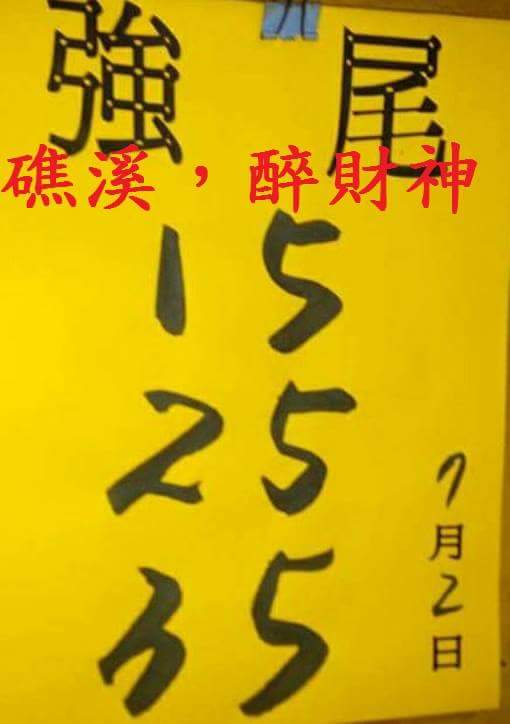 強尾
礁溪，醉財神
15
25
35
7月2日